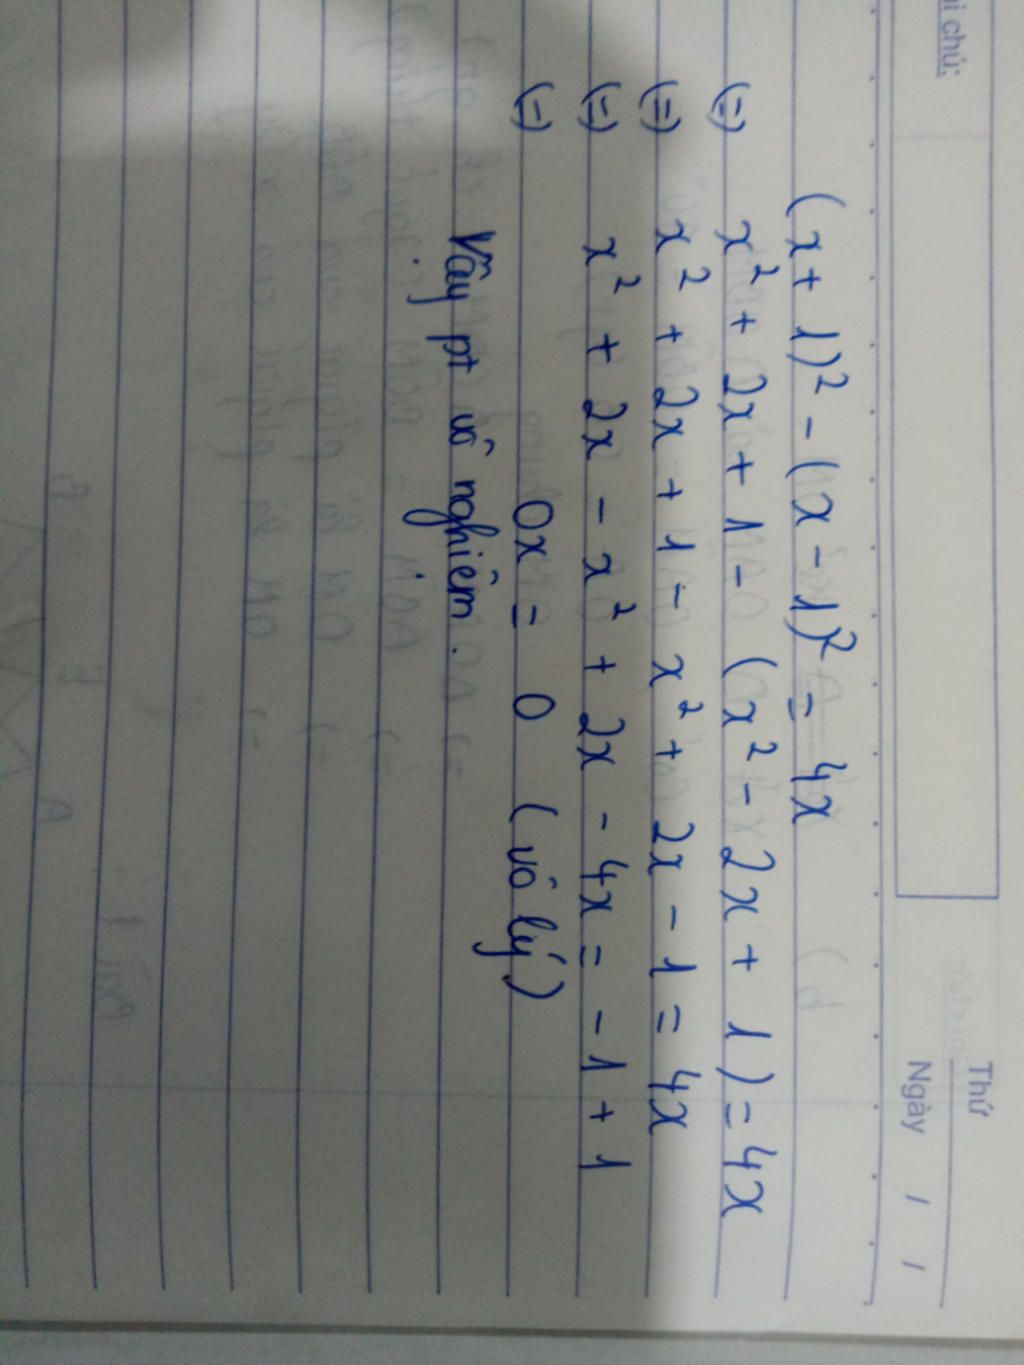 i chú:
Thứ
Ngày / /
(x + 1)² - (x - 1)² = 4x
(=) x² + 2x + 1 - (x² - 2x + 1) = 4x
(=) x² + 2x + 1 - x² + 2x - 1 = 4x
(=) x² + 2x - x² + 2x - 4x = -1 + 1
(=) 0x = 0 (vô lý)
Vậy pt vô nghiệm.